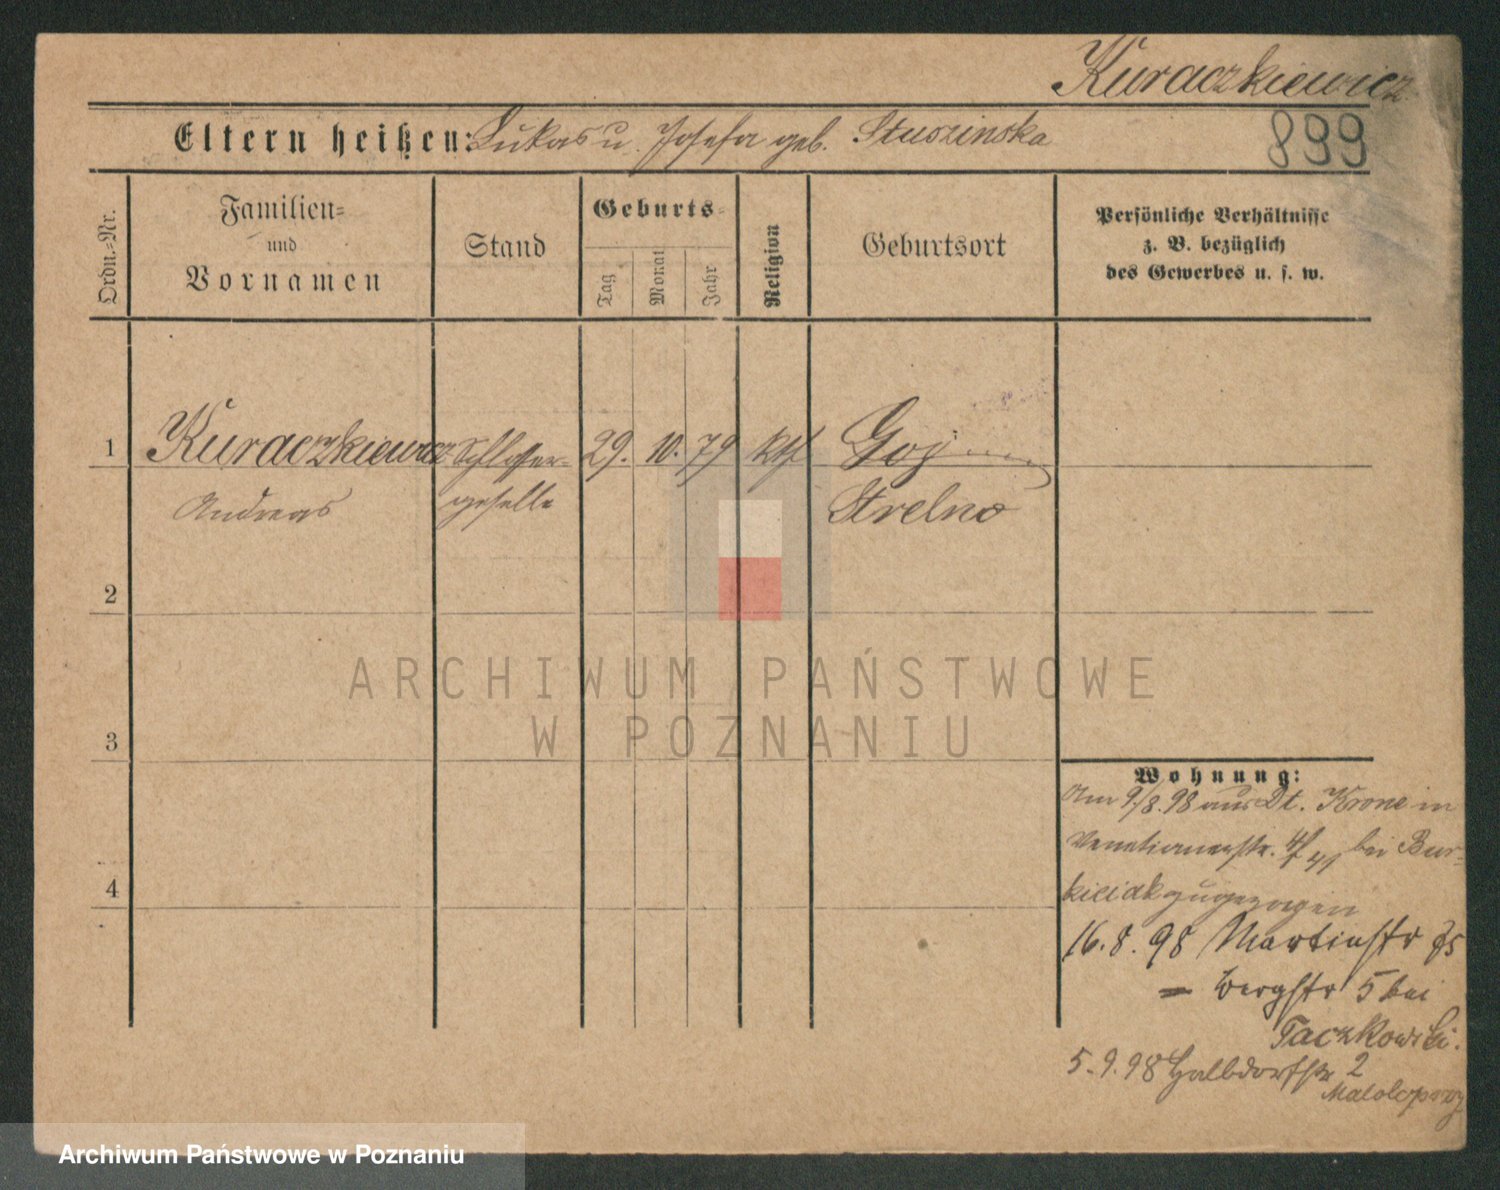 Kuraczkiewicz
Eltern heißen: Lukas u. Josefa geb. Stuszinska
899
Ordn.-Nr.
Familien- und Vornamen
Stand
Geburts-
Tag
Monat
Jahr
Religion
Geburtsort
Persönliche Verhältnisse
z. B. bezüglich
des Gewerbes u. s. w.
1 Kuraczkiewicz Schlosser- 29. 10. 79 kth
Andreas geselle Strelno
2
3
4
Wohnung:
Am 9/8.98 aus Dt. Krone in
Venetianerstr. bei Bur-
kiciak zugezogen
16.8.98 Martinstr
= Bergstr 5 bei
Taczkowski.
5.9.98 Halbdorfstr 2
ARCHIWUM PAŃSTWOWE
W POZNANIU
Archiwum Państwowe w Poznaniu